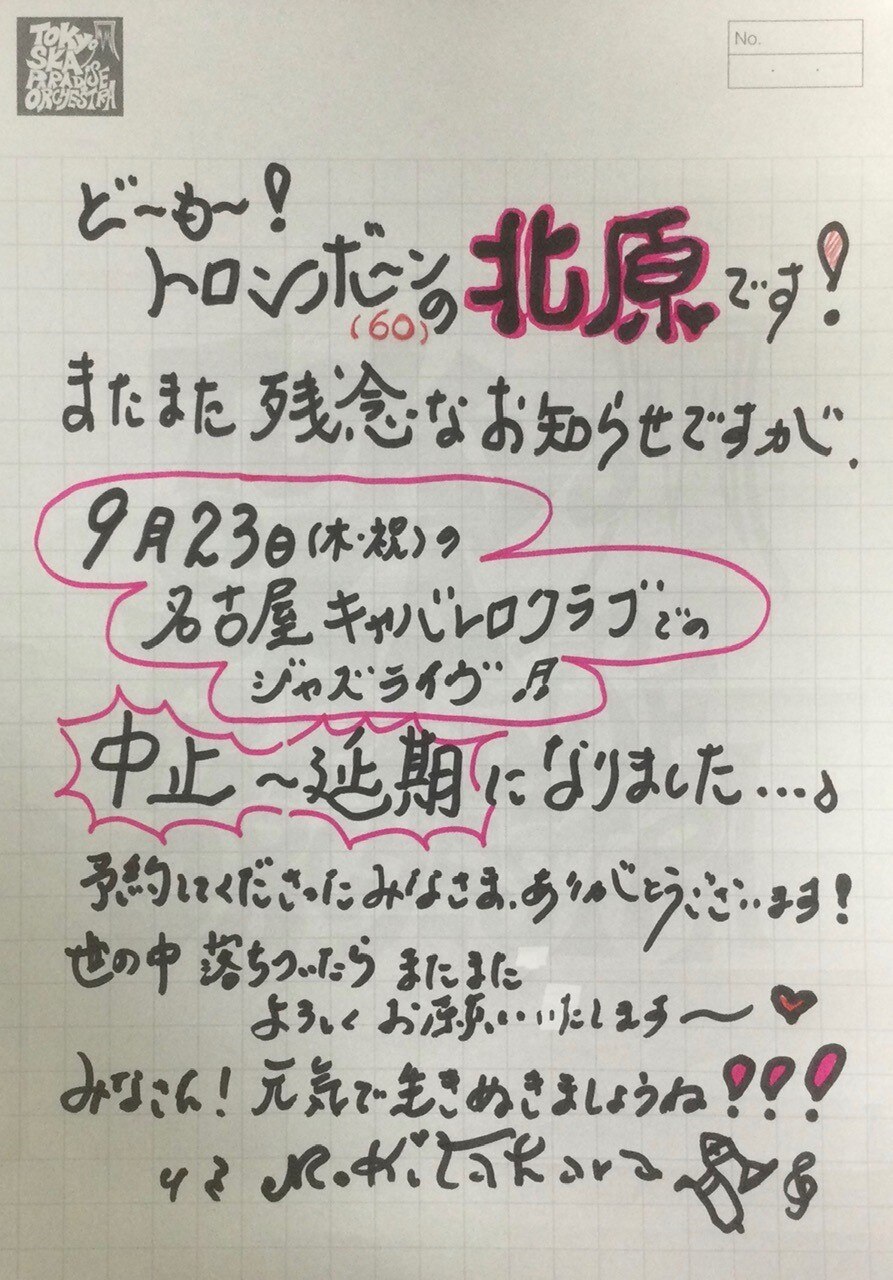 TOKYO
SKA
PARADISE
ORCHESTRA
No.
ど〜も〜!
トロンボーンの北原です!
(60)
またまた残念なお知らせですが、
9月23日(木・祝)の
名古屋キャバレロクラブでの
ジャズライヴ♬
中止〜延期になりました…♪
予約してくださったみなさま、ありがとうございます!
世の中落ちついたらまたまた
よろしくお願いいたします〜♥
みなさん!元気で生きぬきましょうね!!!
M.Kitahara